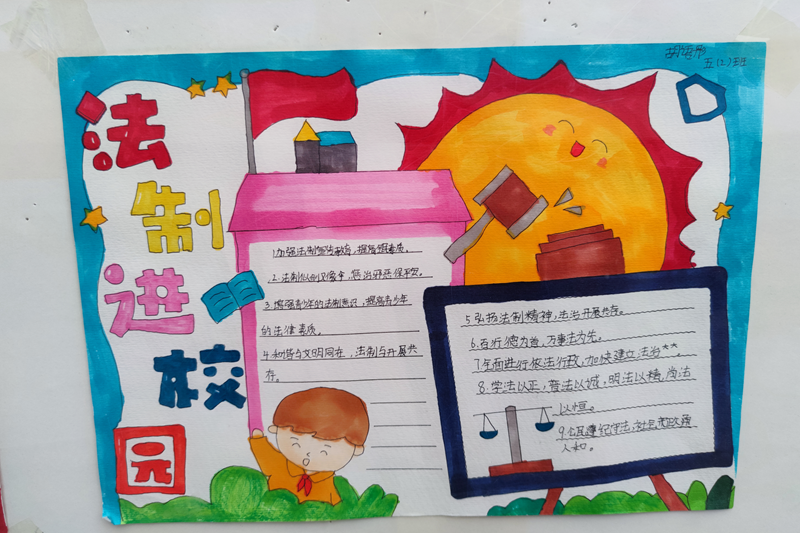 胡
五(2)班
法
制
进
校
园
1.加强法制宣传教育,提高 素质。
2.法制 保平安。
3.增强青少年的法制意识,提高青少年
的法律素质。
4.和谐与文明同在,法制与开展共
存。
5.弘扬法制精神,法治开展共存。
6.百行德为首,万事法为先。
7.全面进行依法行政,加快建立法治**。
8.学法以正,普法以诚,明法以精,尚法
以恒。
9. 遵纪守法,
人和。